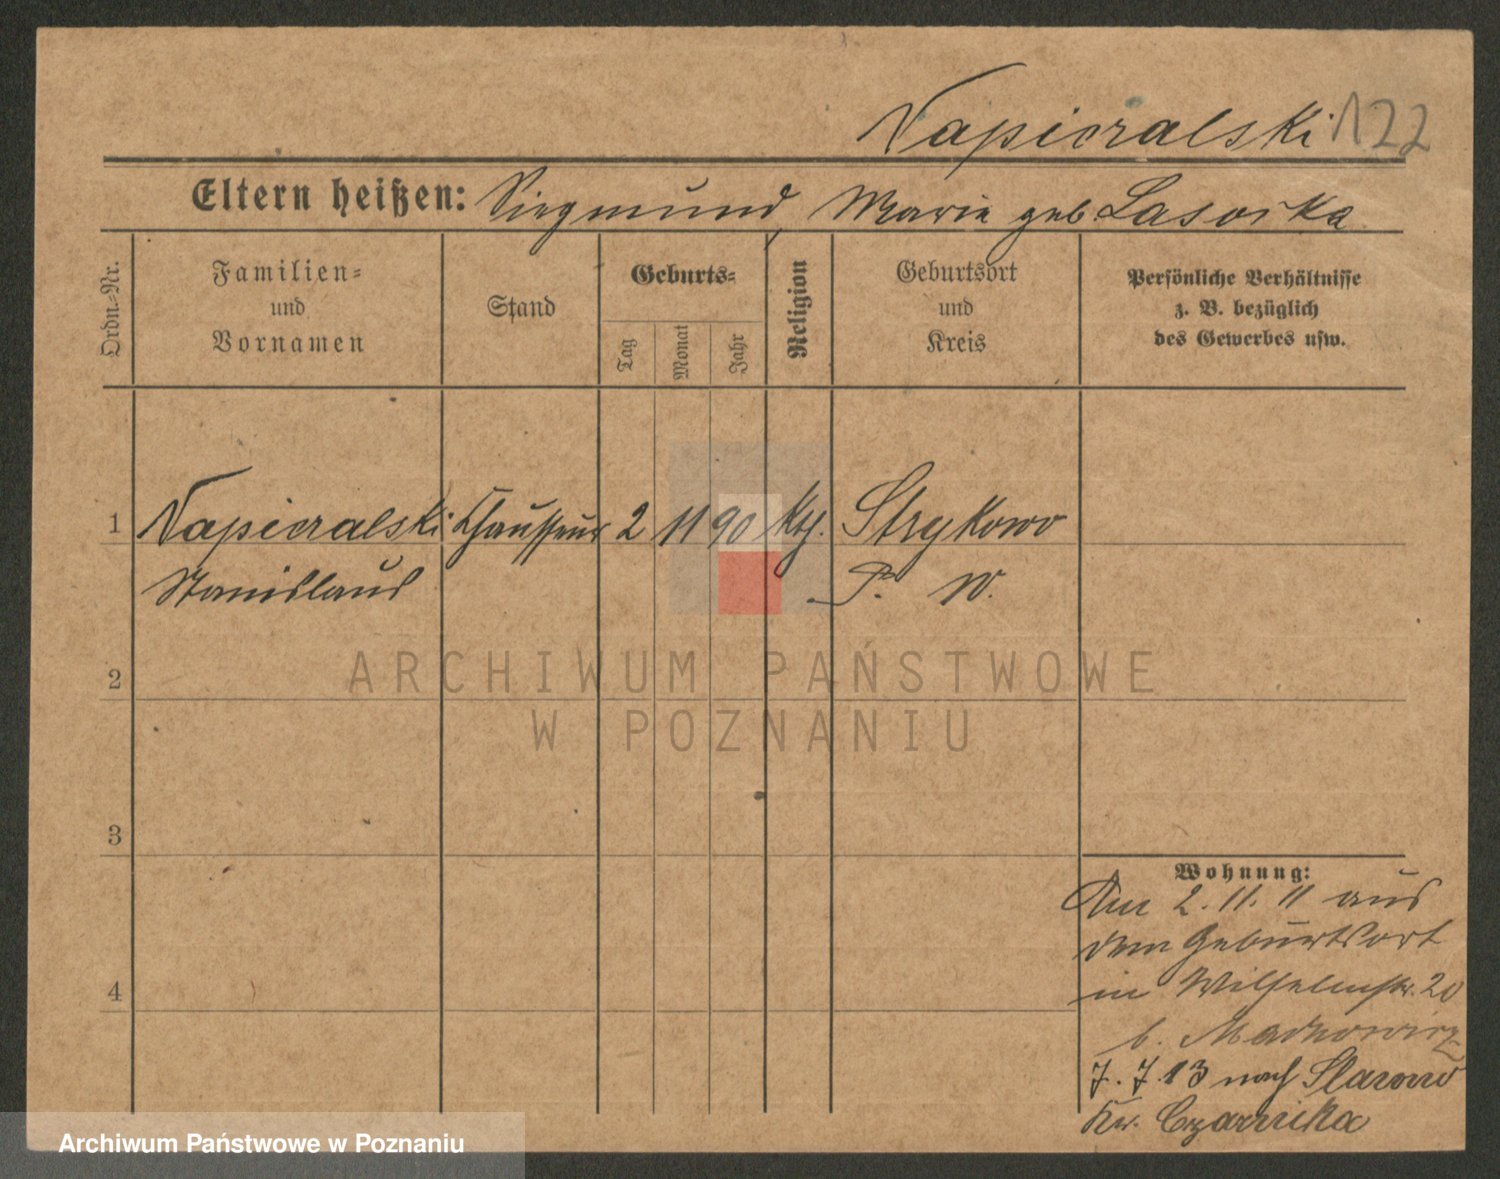 Napieralski 122
Eltern heißen: Siegmund, Marie geb. Lasoska
Ordn.-Nr.
Familien-
und
Vornamen
Stand
Geburts-
Tag
Monat
Jahr
Religion
Geburtsort
und
Kreis
Persönliche Verhältnisse
z. B. bezüglich
des Gewerbes usw.
1 Napieralski Chauffeur 2 11 90 kth. Strykowo
Stanislaus P. W.
ARCHIWUM PAŃSTWOWE
W POZNANIU
2
3
4
Wohnung:
Am 2. 11. 11 aus
dem Geburtsort
in Wilhelmstr. 20
b.
7. 7. 13 nach
Kr. Czarnika
Archiwum Państwowe w Poznaniu